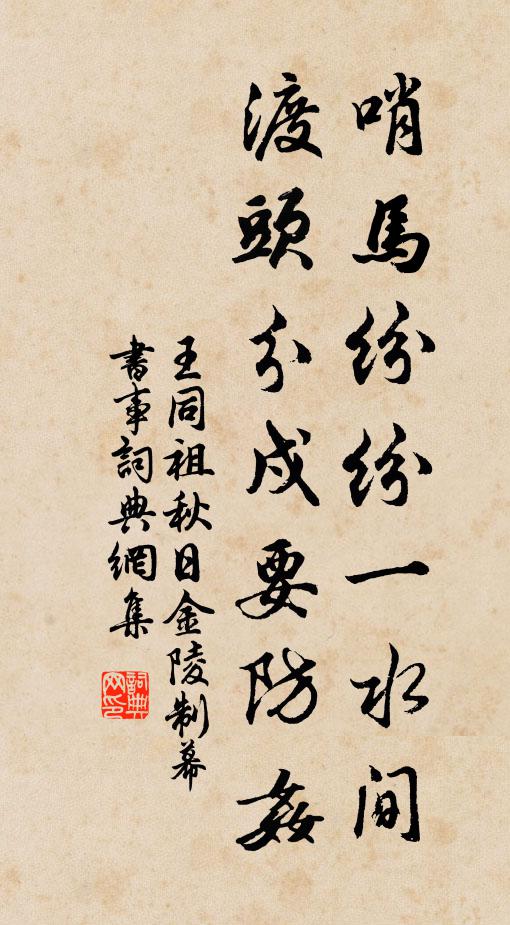 哨馬紛紛一水間
渡頭分戍要防姦
王同祖秋日金陵制幕
書事詞典網集
詞典網印